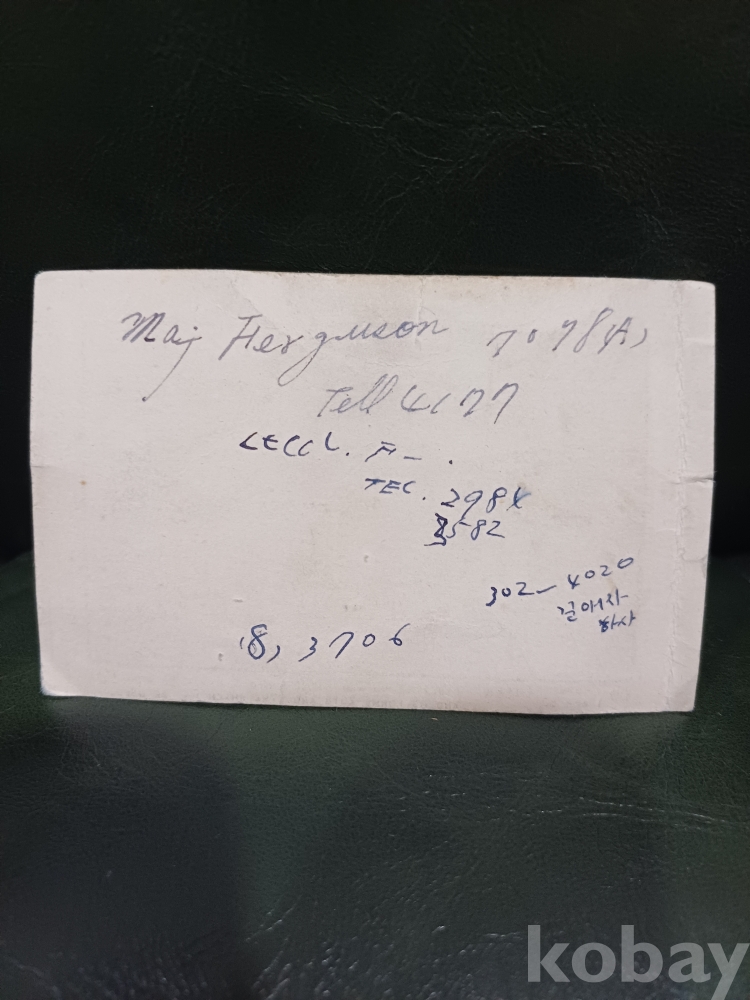 Maj Ferguson 7078(A)
Tell 4177
TEC. 2984
3582
302-4020
하사
8, 3706
kobay